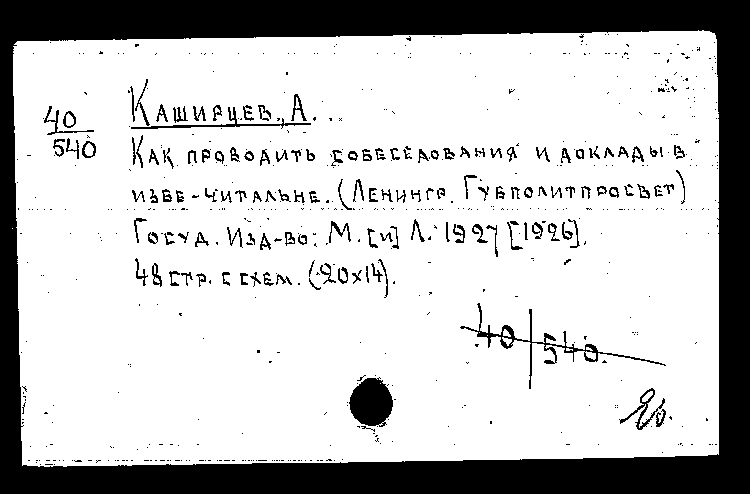 40
540
Каширцев, А.
Как проводить собеседования и доклады в
избе-читальне. (Ленингр. Губполитпросвет)
Госуд. Изд-во: М. [и] Л. 1927 [1926].
48 стр. с схем. (20x14).
40 | 540.